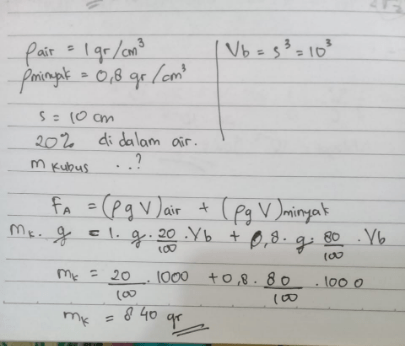 ρair = 1 gr/cm³
ρminyak = 0,8 gr/cm³
s = 10 cm
20% di dalam air.
m kubus ..?
Vb = s³ = 10³
FA = (ρgV)air + (ρgV)minyak
mk. g = 1. g. 20/100 . Vb + 0,8. g. 80/100 . Vb
mk = 20/100 . 1000 + 0,8. 80/100 . 1000
mk = 840 gr